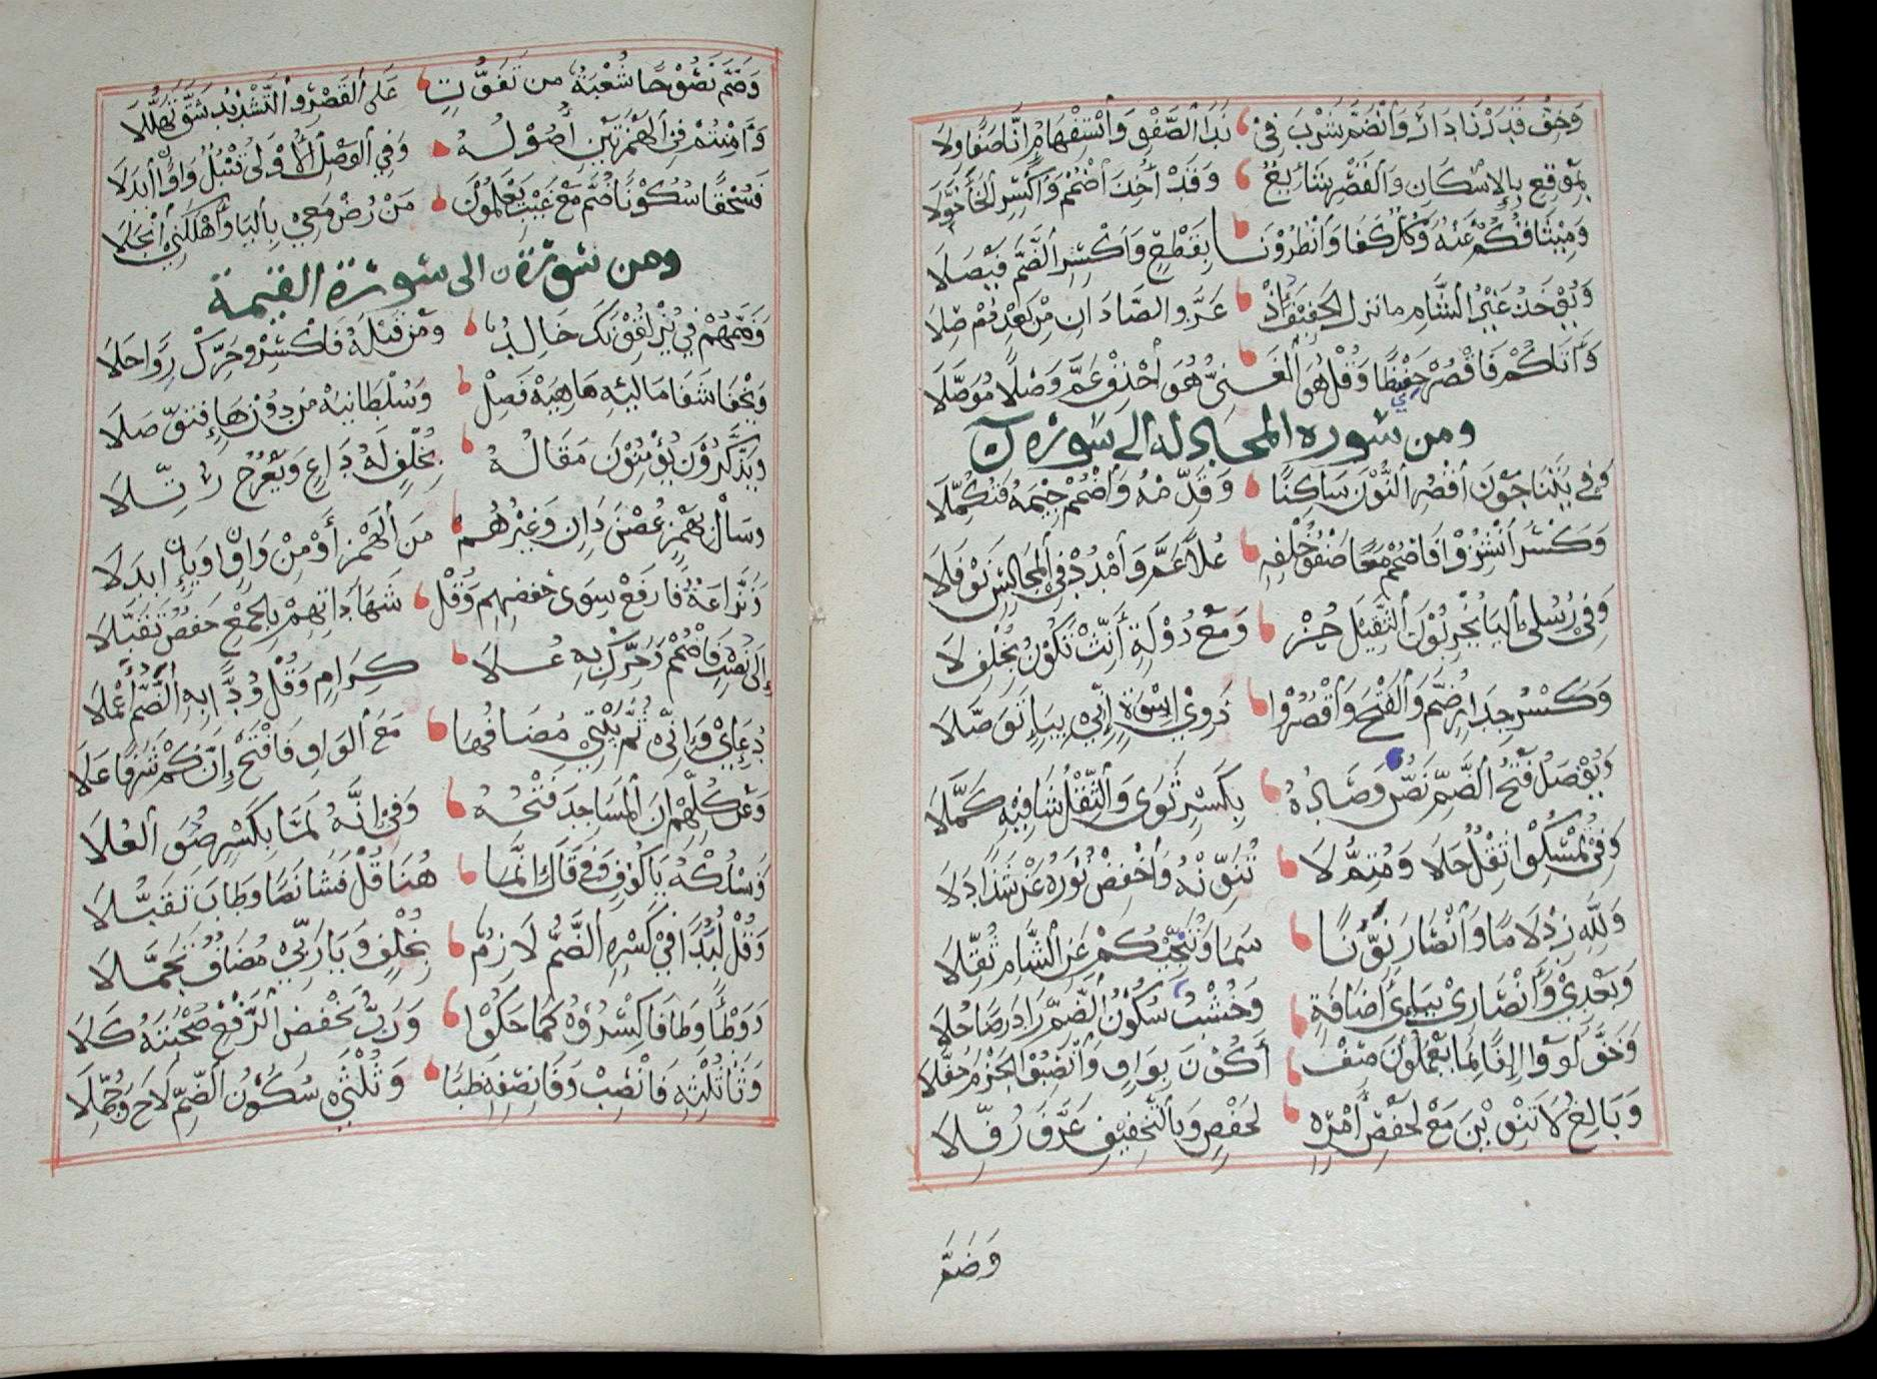 وَخِفُّ قَدَرْنَا دَارَ وَانْضَمَّ شُرْبَ فِي نَدَا الصَّفْوِ وَاسْتِفْهَامُ إِنَّا صَفَا وِلَا
بِمَوْقِعِ بِالإِسْكَانِ وَالْقَصْرِ شَائِعٌ وَقَدْ أُخِذَ اضْمُمْ وَاكْسِرِ الْخَاءَ حُوَّلَا
وَمِيثَاقُكُمْ عَنْهُ وَكُلٌّ كَفَا وَأَنْظِرُونَا بِقَطْعٍ وَاكْسِرِ الضَّمَّ فَيْصَلَا
وَيُؤْخَذُ غَيْرُ الشَّامِ مَا نَزَلَ الْخَفِيفُ إِذْ عَزَّ وَالصَّادَانِ مِنْ بَعْدُ دُمْ صِلَا
وَآتَاكُمُ فَاقْصُرْ حَفِيظًا وَقُلْ هُوَ الْغَنِيُّ هُوَ احْذِفْ عَمَّ وَصْلًا مُوَصَّلَا
ومن سورة المجادلة إلى سورة ن
وَفِي يَتَنَاجَوْنَ اقْصُرِ النُّونَ سَاكِنًا وَقَدِّمْهُ وَاضْمُمْ جِيمَهُ فَتُكَمِّلَا
وَكَسْرَ انْشِزُوا فَاضْمُمْ مَعًا صَفْوَ خُلْفِهِ عُلًا عَمَّ وَامْدُدْ فِي الْمَجَالِسِ نَوْفَلَا
وَفِي رُسُلِي الْيَا يُخْرِبُونَ الثَّقِيلَ حُزْ وَمَعْ دُولَةٍ أَنِّثْ تَكُونُ بِخُلْفِ لَا
وَكَسْرُ جِدَارٍ ضُمَّ وَالْفَتْحَ وَاقْصُرُوا ذَوِي إِسْوَةٍ إِنِّي بِيَاءٍ تَوَصَّلَا
وَيُفْصَلُ فَتْحُ الضَّمِّ نَصٌّ وَصَادُهُ بِكَسْرٍ ثَوَى وَالثِّقْلُ شَافِيهِ كَمَّلَا
وَفِي تُمْسِكُوا ثِقْلٌ حَلَا وَمُتِمُّ لَا تُنَوِّنْهُ وَاخْفِضْ نُورَهُ عَنْ شَذًا دَلَا
وَلِلَّهِ زِدْ لَامًا وَأَنْصَارَ نَوِّنًا سَمَا وَتُنَجِّيكُمْ عَنِ الشَّامِ ثُقِّلَا
وَبَعْدِي وَأَنْصَارِي بِيَاءِ إِضَافَةٍ وَخُشْبٌ سُكُونُ الضَّمِّ زَادَ رِضًا حَلَا
وَخَفَّ لَوَوْا إِلْفًا بِمَا يَعْمَلُونَ صِفْ أَكُونَ بِوَاوٍ وَانْصِبُوا الْجَزْمَ حُفَّلَا
وَبَالِغُ لَا تَنْوِينَ مَعْ خَفْضِ أَمْرِهِ لِحَفْصٍ وَبِالتَّخْفِيفِ عَرَّفَ رُفِّلَا
وَضَمَّ
وَضَمَّ نَصُوحًا شُعْبَةٌ مِنْ تَفَوُّتٍ عَلَى الْقَصْرِ وَالتَّشْدِيدِ شَقَّ تَهَلُّلَا
وَآمِنْتُمُ فِي الْهَمْزَتَيْنِ أُصُولُهُ وَفِي الْوَصْلِ الأُولَى قُنْبُلٌ وَاوًا ابْدَلَا
فَسُحْقًا سُكُونًا ضُمَّ مَعْ غَيْبِ يَعْلَمُونَ مَنْ رُضْ مَعِي بِالْيَا وَأَهْلَكَنِي انْجَلَا
ومن سورة ن إلى سورة القيمة
وَضَمُّهُمْ فِي يُزْلِقُونَكَ خَالِدٌ وَمَنْ قَبْلَهُ فَاكْسِرْ وَحَرِّكْ رِوًا حَلَا
وَيَخْفَا شَفَا مَالِيَهْ مَاهِيَهْ فَصِلْ وَسُلْطَانِيَهْ مِنْ دُونِ هَاءٍ فَتُوصَلَا
وَيَذَّكَّرُونَ يُؤْمِنُونَ مَقَالُهُ بِخُلْفٍ لَهُ دَاعٍ وَيَعْرُجُ رُتِّلَا
وَسَالَ بِهَمْزٍ غُصْنُ دَانٍ وَغَيْرُهُمْ مِنَ الْهَمْزِ أَوْ مِنْ وَاوٍ اوْ يَاءٍ ابْدَلَا
وَنَزَّاعَةً فَارْفَعْ سِوَى حَفْصِهِمْ وَقُلْ شَهَادَاتِهِمْ بِالْجَمْعِ حَفْصٌ تَقَبَّلَا
إِلَى نُصُبٍ فَاضْمُمْ وَحَرِّكْ بِهِ عُلَا كِرَامٍ وَقُلْ وُدًّا بِهِ الضَّمُّ أُعْمِلَا
دُعَائِي وَإِنِّي ثُمَّ بَيْتِي مُضَافُهَا مَعَ الْوَاوِ فَافْتَحْ إِنَّ كَمْ شَرَفًا عَلَا
وَعَنْ كُلِّهِمْ أَنَّ الْمَسَاجِدَ فَتْحُهُ وَفِي إِنَّهُ لَمَّا بِكَسْرٍ صُوَى الْعُلَا
وَنَسْلُكُهُ يَا كُوفٍ وَفِي قَالَ إِنَّمَا هُنَا قُلْ فَشَا نَصًّا وَطَابَ تَقَبُّلَا
وَقُلْ لُبَدًا فِي كَسْرِهِ الضَّمُّ لَازِمٌ بِخُلْفٍ وَيَا رَبِّي مُضَافٌ تَجَمَّلَا
وَوَطْأً وِطَاءً فَاكْسِرُوهُ كَمَا حَكَوْا وَرَبُّ بِخَفْضِ الرَّفْعِ صُحْبَتُهُ كَلَا
وَثَا ثُلْثِهِ فَانْصِبْ وَفَا نِصْفِهِ ظُبًا وَثُلْثَيْ سُكُونُ الضَّمِّ لَاحَ وَجَمَّلَا